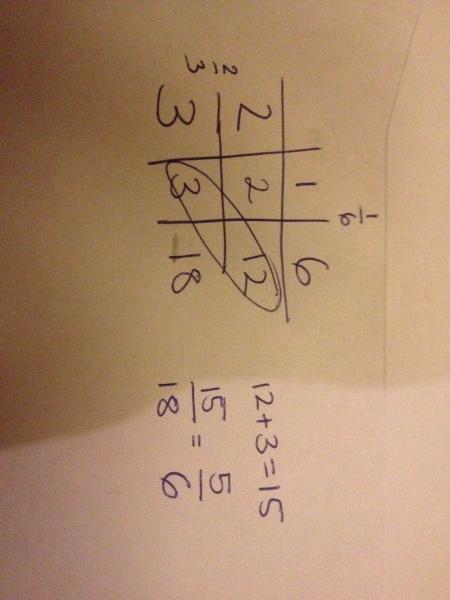 1/6
1 6
2/3
2 2 12
3 3 18
12+3=15
15/18 = 5/6